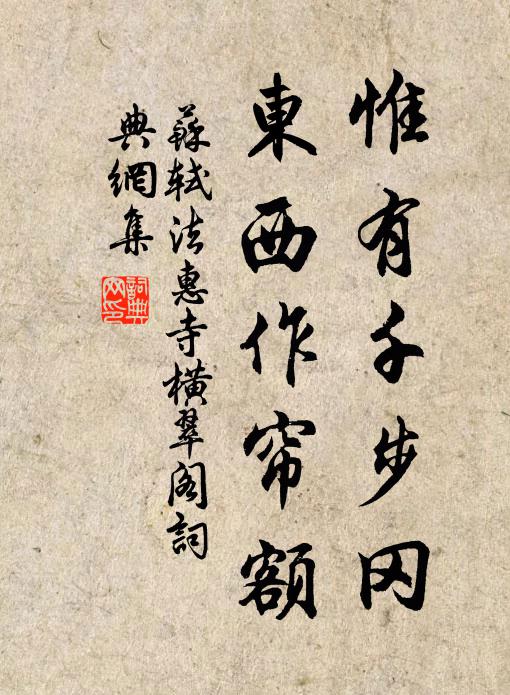 惟有千步冈
東西作帘額
蘇軾法惠寺橫翠阁詞
典網集
詞典网印